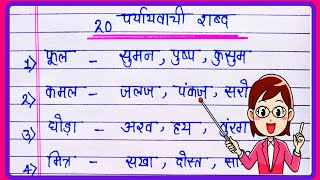 20 पर्यायवाची शब्द
1) फूल - सुमन, पुष्प, कुसुम
2) कमल - जलज, पंकज,
3) घोड़ा - अश्व, हय,
4) मित्र - सखा, दोस्त,